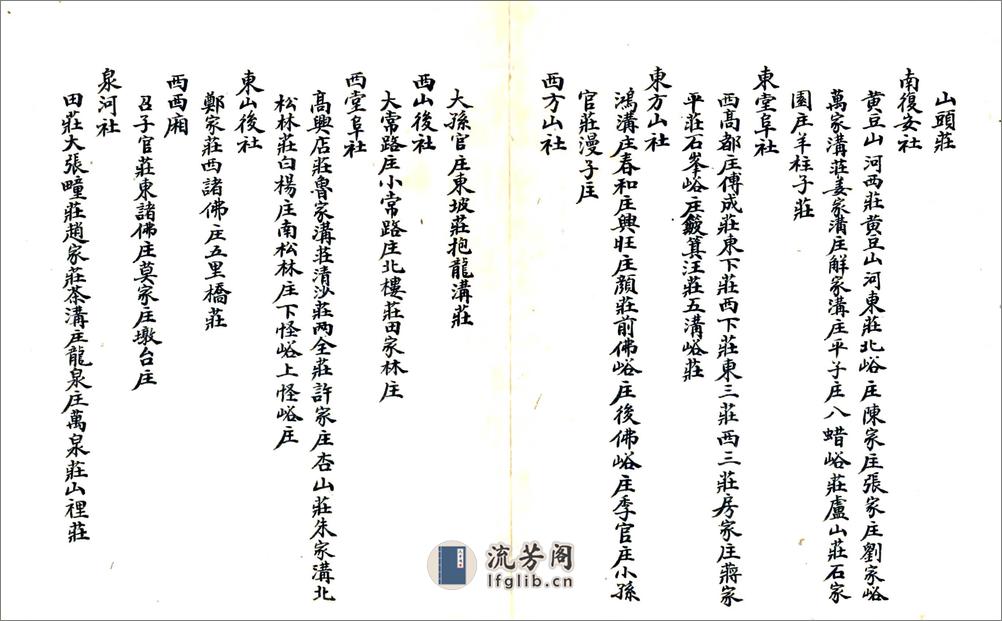 山頭莊
南復安社
黃豆山河西莊黃豆山河東莊北峪庄陳家庄張家庄劉家峪
萬家溝莊姜家溝庄解家溝庄平子庄八蜡峪莊盧山莊石家
園庄羊柱子莊
東堂阜社
西高都庄傅成莊東下莊西下莊東三莊西三莊房家庄蔣家
平莊石峯峪庄簸箕汪莊五溝峪莊
東方山社
鴻溝庄春和庄興旺庄顔莊前佛峪庄後佛峪庄季官庄小孫
官莊漫子庄
西方山社
大孫官庄東坡莊抱龍溝莊
西山後社
大常路庄小常路庄北樓莊田家林庄
西堂阜社
高興店莊魯家溝莊清沙莊两全莊許家庄杏山莊朱家溝北
松林莊白楊庄南松林庄下怪峪上怪峪庄
東山後社
鄭家莊西諸佛庄五里橋莊
西西廂
召子官莊東諸佛庄莫家庄墩台庄
泉河社
田莊大張疃莊趙家莊茶溝庄龍泉庄萬泉莊山裡莊
流芳阁
lfglib.cn